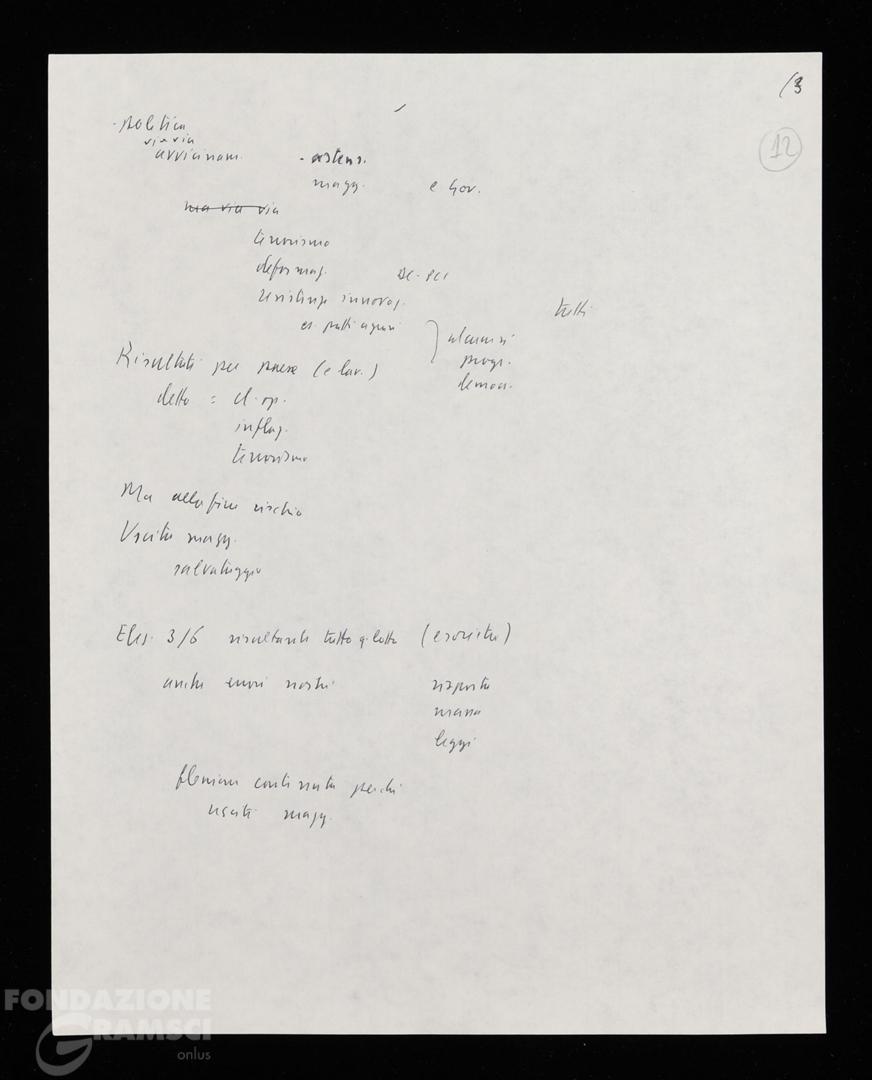 (3
12
- politica
via via
avvicinam. - astens.
magg. e Gov.
ma via via
terrorismo
deformaz. DC-PCI
resistenze innovaz.
es. patti agrari tutti
alcuni sì
progr.
democr.
Risultati per paese (e lav.)
detto = cl. op.
inflaz.
terrorismo
Ma alla fine rischio
Uscita magg.
salvataggio
Elez. 3/6 risultante tutta q. lotta
anche errori nostri risposta
massa
leggi
flessione contenuta perché
usciti magg.
FONDAZIONE
GRAMSCI
onlus